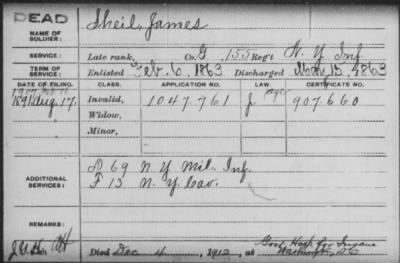 DEAD
NAME OF SOLDIER: Sheil, James
SERVICE: Late rank, Co. G. 155 Reg't N. Y. Inf
TERM OF SERVICE: Enlisted Feb. 6, 1863 Discharged 15, 1863
DATE OF FILING. CLASS. APPLICATION NO. LAW. CERTIFICATE NO.
1891 Aug. 17. Invalid, 1047.761 J 907.660
Widow,
Minor,
ADDITIONAL SERVICES:
D 69 N Y Mil. Inf.
F 13 N. Y. Cav.
REMARKS:
Died Dec 4, 1912, at Gov't Hosp for Insane
Washington, DC